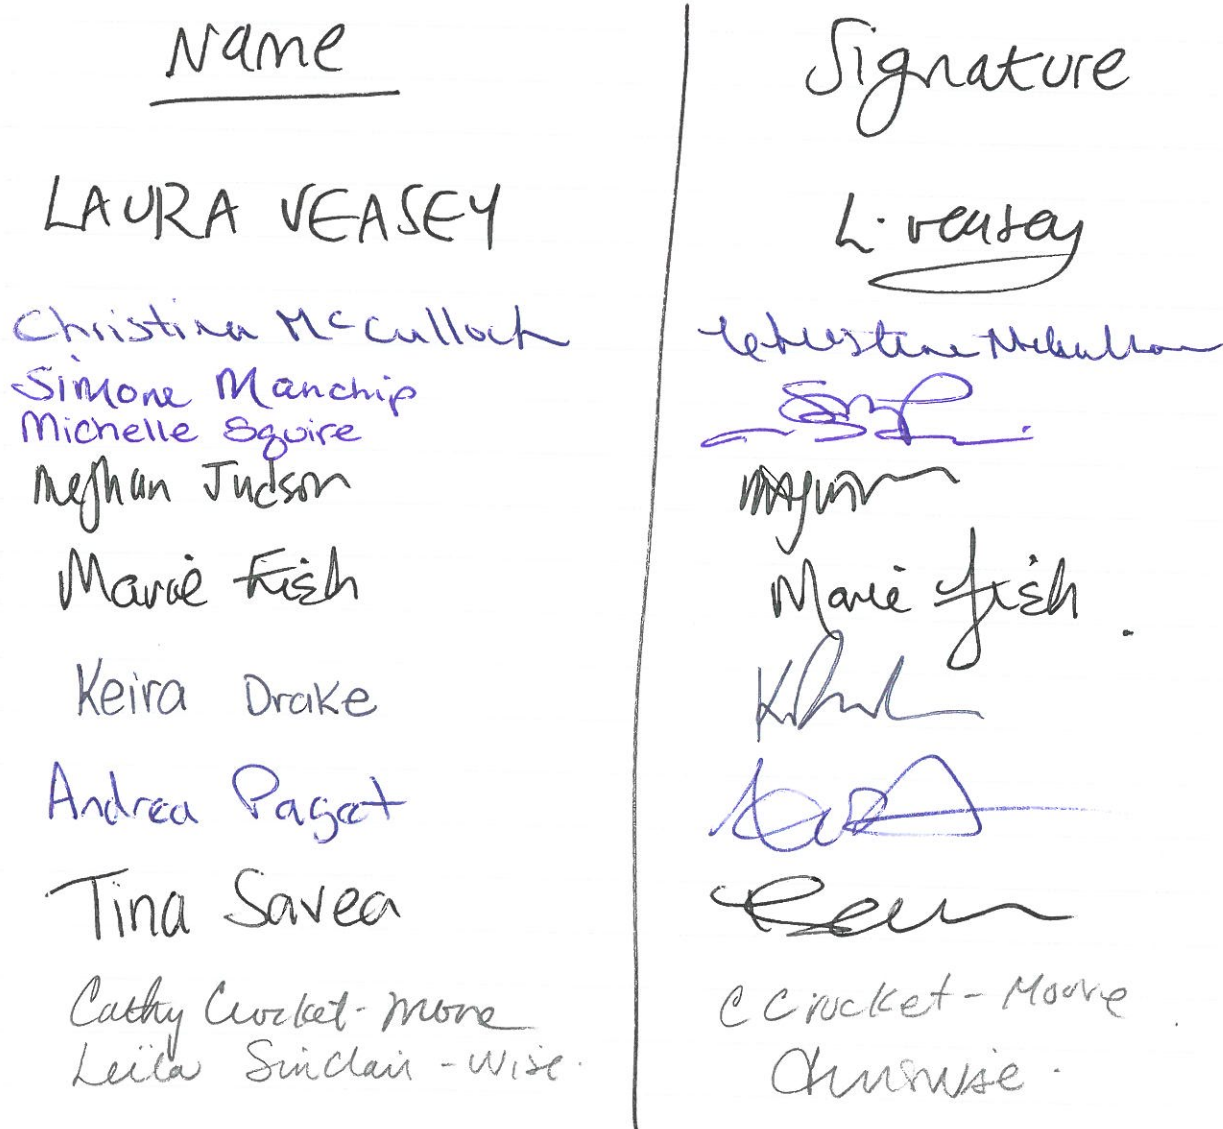 Name Signature
LAURA VEASEY L. Veasey
Christina McCulloch
Simone Manchip
Michelle Squire
Meghan Judson
Marie Fish Marie Fish
Keira Drake
Andrea Pagat
Tina Savea
Cathy Crocket-Moore C Crocket-Moore
Leila Sinclair-Wise.